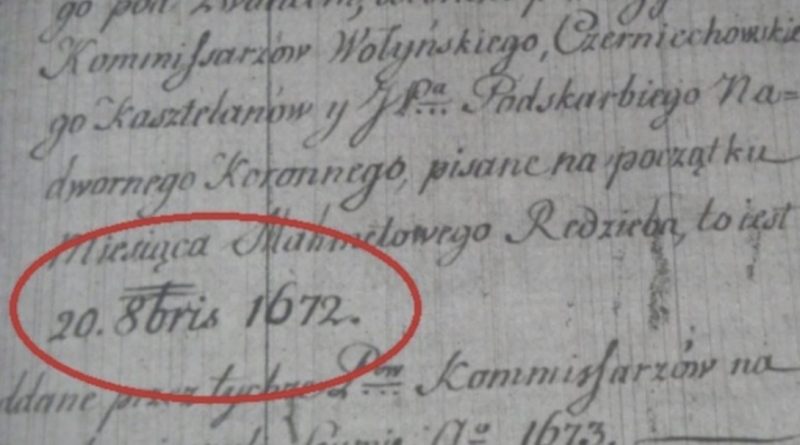 go pod Zwańcem,
Kommissarzów Wołyńskiego, Czerniechowskie
go Kasztelanów y J Pa Podskarbiego Na=
dwornego Koronnego, pisane na początku
Miesiąca Mahmetowego Redzieba, to iest
20. 8bris 1672.
ddane przez tychże Pow Kommissarzów na
Ao 1673.